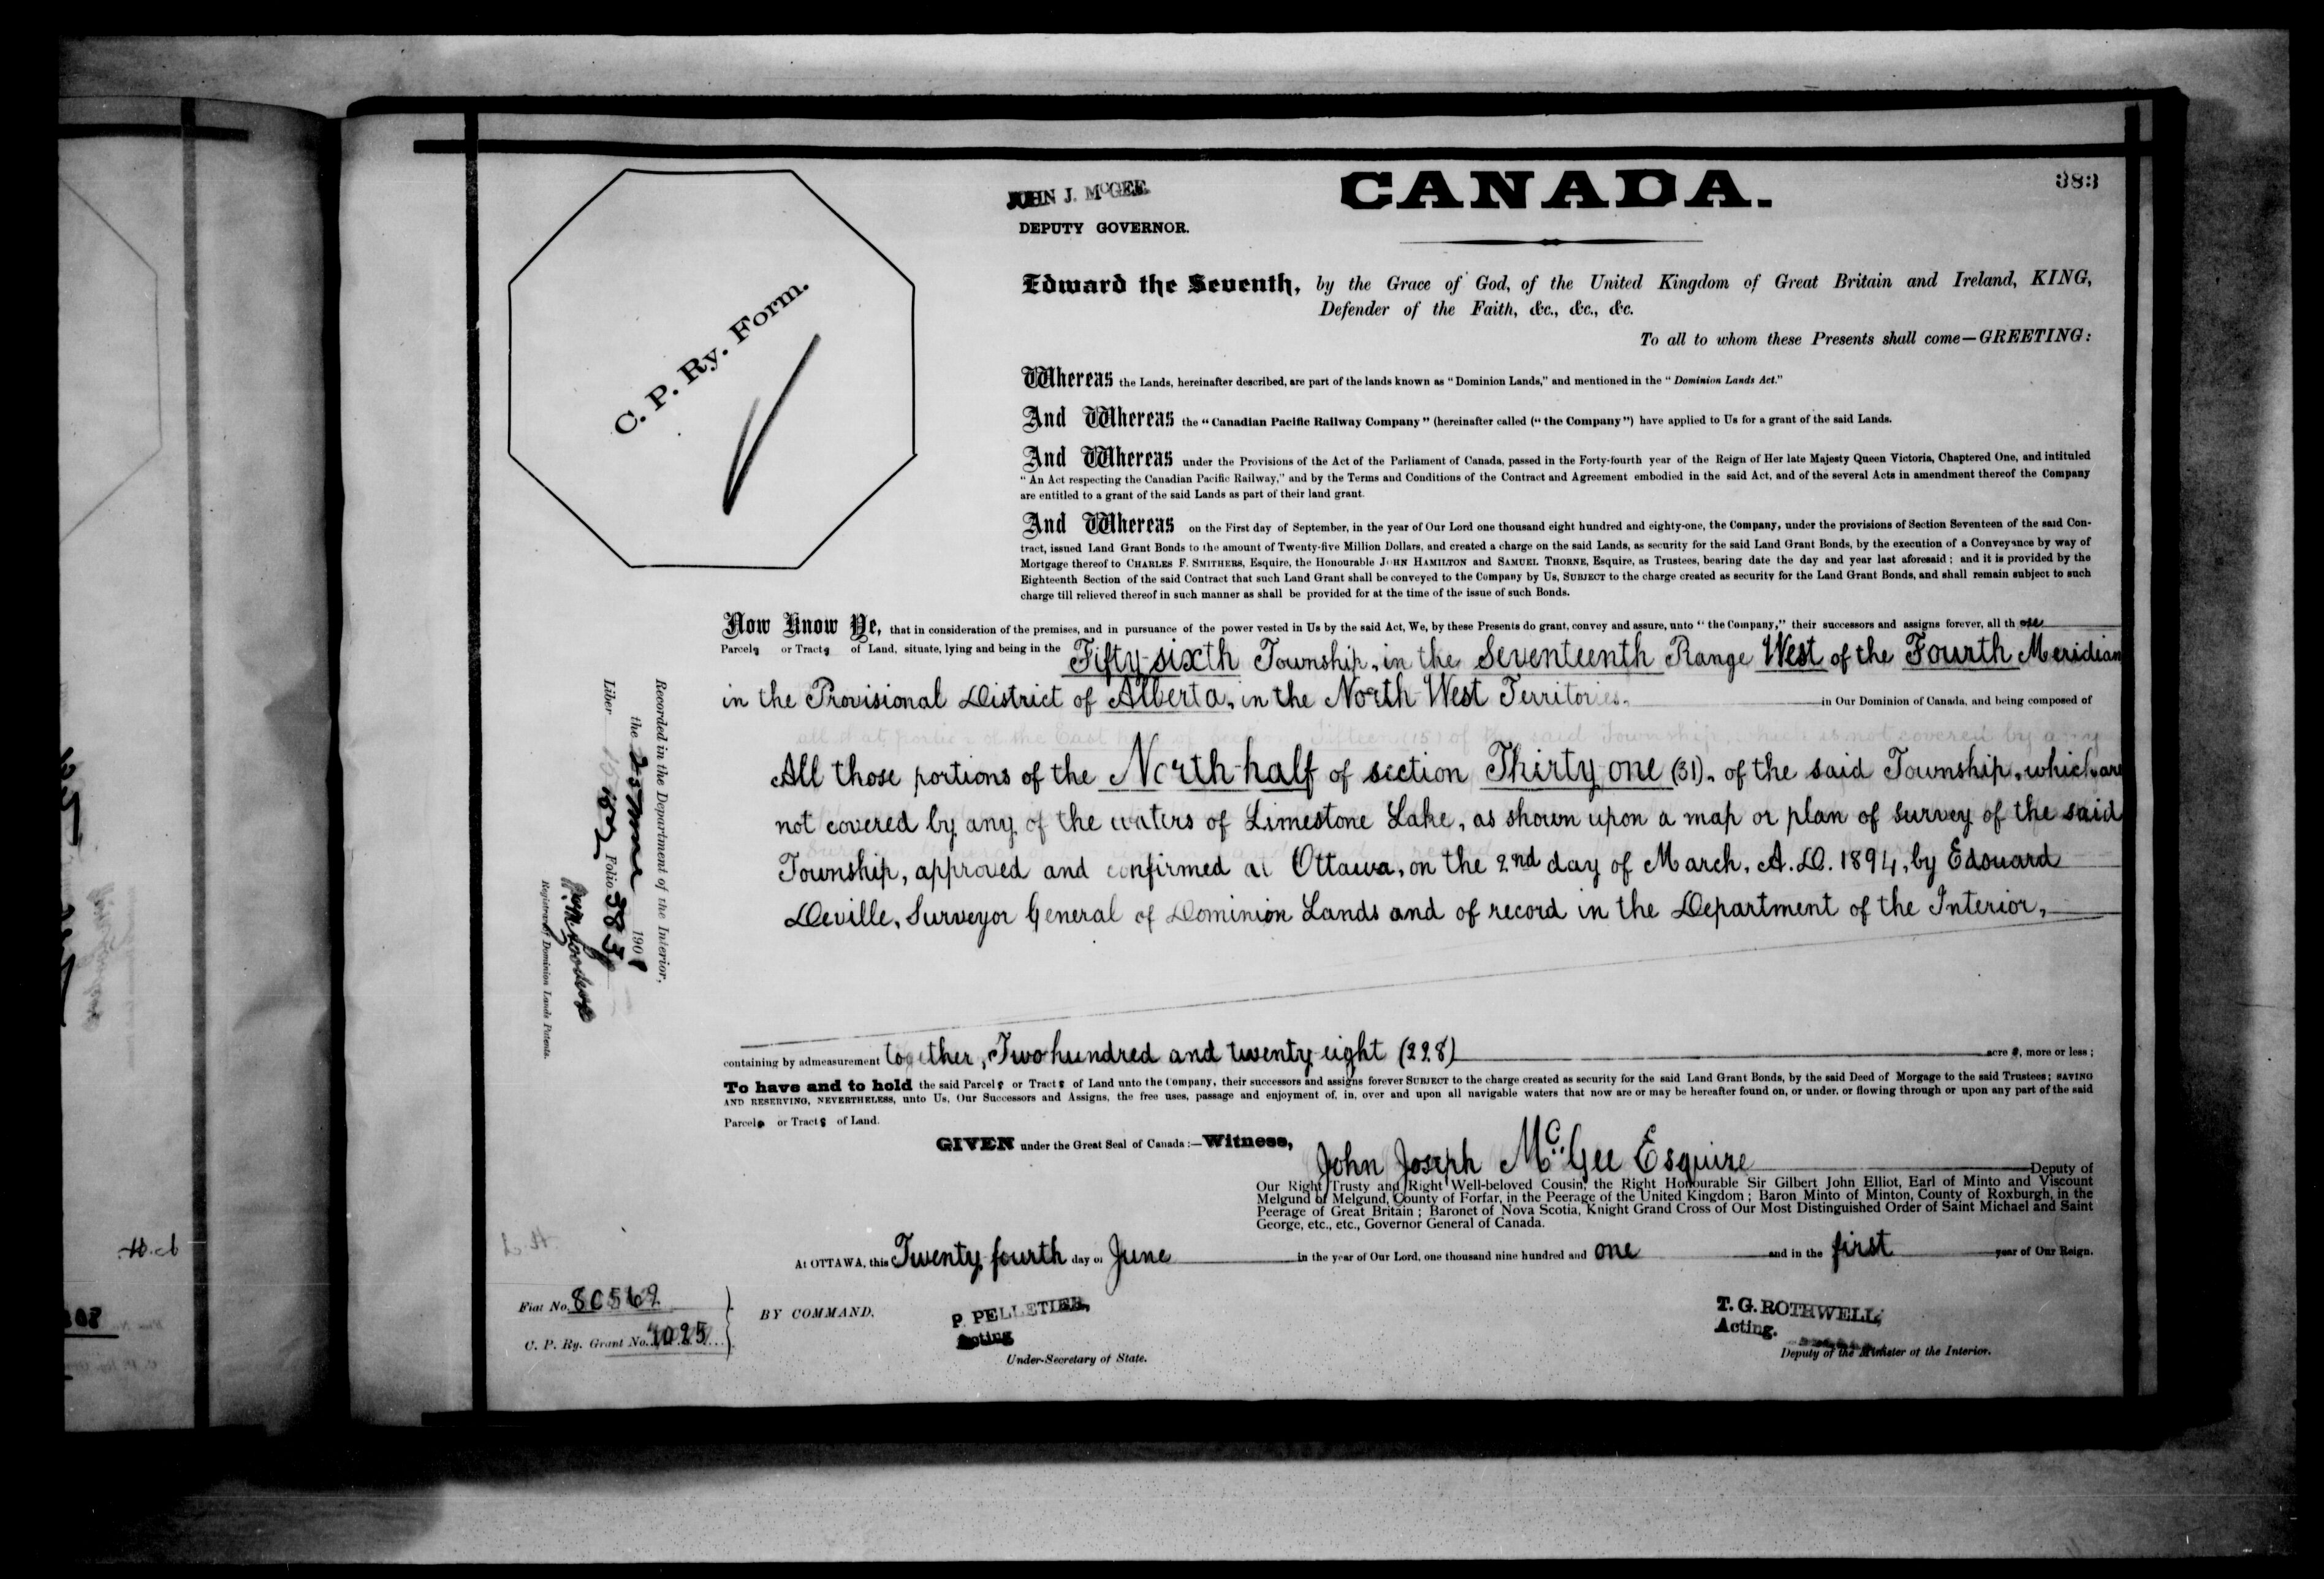 383
JOHN J. McGEE
DEPUTY GOVERNOR.
CANADA.
C. P. Ry. Form.
Edward the Seventh, by the Grace of God, of the United Kingdom of Great Britain and Ireland, KING,
Defender of the Faith, &c., &c., &c.
To all to whom these Presents shall come—GREETING:
Whereas the Lands, hereinafter described, are part of the lands known as "Dominion Lands," and mentioned in the "Dominion Lands Act."
And Whereas the "Canadian Pacific Railway Company" (hereinafter called ("the Company") have applied to Us for a grant of the said Lands.
And Whereas under the Provisions of the Act of the Parliament of Canada, passed in the Forty-fourth year of the Reign of Her late Majesty Queen Victoria, Chaptered One, and intituled
"An Act respecting the Canadian Pacific Railway," and by the Terms and Conditions of the Contract and Agreement embodied in the said Act, and of the several Acts in amendment thereof the Company
are entitled to a grant of the said Lands as part of their land grant.
And Whereas on the First day of September, in the year of Our Lord one thousand eight hundred and eighty-one, the Company, under the provisions of Section Seventeen of the said Con-
tract, issued Land Grant Bonds to the amount of Twenty-five Million Dollars, and created a charge on the said Lands, as security for the said Land Grant Bonds, by the execution of a Conveyance by way of
Mortgage thereof to CHARLES F. SMITHERS, Esquire, the Honourable JOHN HAMILTON and SAMUEL THORNE, Esquire, as Trustees, bearing date the day and year last aforesaid; and it is provided by the
Eighteenth Section of the said Contract that such Land Grant shall be conveyed to the Company by Us, SUBJECT to the charge created as security for the Land Grant Bonds, and shall remain subject to such
charge till relieved thereof in such manner as shall be provided for at the time of the issue of such Bonds.
Now Know Ye, that in consideration of the premises, and in pursuance of the power vested in Us by the said Act, We, by these Presents do grant, convey and assure, unto "the Company," their successors and assigns forever, all those
Parcels or Tracts of Land, situate, lying and being in the Fifty-sixth Township, in the Seventeenth Range West of the Fourth Meridian
in the Provisional District of Alberta, in the North West Territories. in Our Dominion of Canada, and being composed of
All those portions of the North half of section Thirty one (31), of the said Township, which are
not covered by any of the waters of Limestone Lake, as shown upon a map or plan of survey of the said
Township, approved and confirmed at Ottawa, on the 2nd day of March, A.D. 1894, by Edouard
Deville, Surveyor General of Dominion Lands and of record in the Department of the Interior,
containing by admeasurement together, Two hundred and twenty eight (228) acres, more or less;
To have and to hold the said Parcels or Tracts of Land unto the Company, their successors and assigns forever SUBJECT to the charge created as security for the said Land Grant Bonds, by the said Deed of Morgage to the said Trustees; SAVING
AND RESERVING, NEVERTHELESS, unto Us, Our Successors and Assigns, the free uses, passage and enjoyment of, in, over and upon all navigable waters that now are or may be hereafter found on, or under, or flowing through or upon any part of the said
Parcels or Tracts of Land.
GIVEN under the Great Seal of Canada:—Witness,
John Joseph McGee Esquire Deputy of
Our Right Trusty and Right Well-beloved Cousin, the Right Honourable Sir Gilbert John Elliot, Earl of Minto and Viscount
Melgund of Melgund, County of Forfar, in the Peerage of the United Kingdom; Baron Minto of Minton, County of Roxburgh, in the
Peerage of Great Britain; Baronet of Nova Scotia, Knight Grand Cross of Our Most Distinguished Order of Saint Michael and Saint
George, etc., etc., Governor General of Canada.
At OTTAWA, this Twenty fourth day of June in the year of Our Lord, one thousand nine hundred and one and in the first year of Our Reign.
BY COMMAND.
P. PELLETIER,
Acting
Under-Secretary of State.
T. G. ROTHWELL,
Acting.
Deputy of the Minister of the Interior.
Fiat No. 80569
C. P. Ry. Grant No. 1025
Recorded in the Department of the Interior,
the 25 June 1901
Liber Folio 383
Registrar of Dominion Lands Patents.